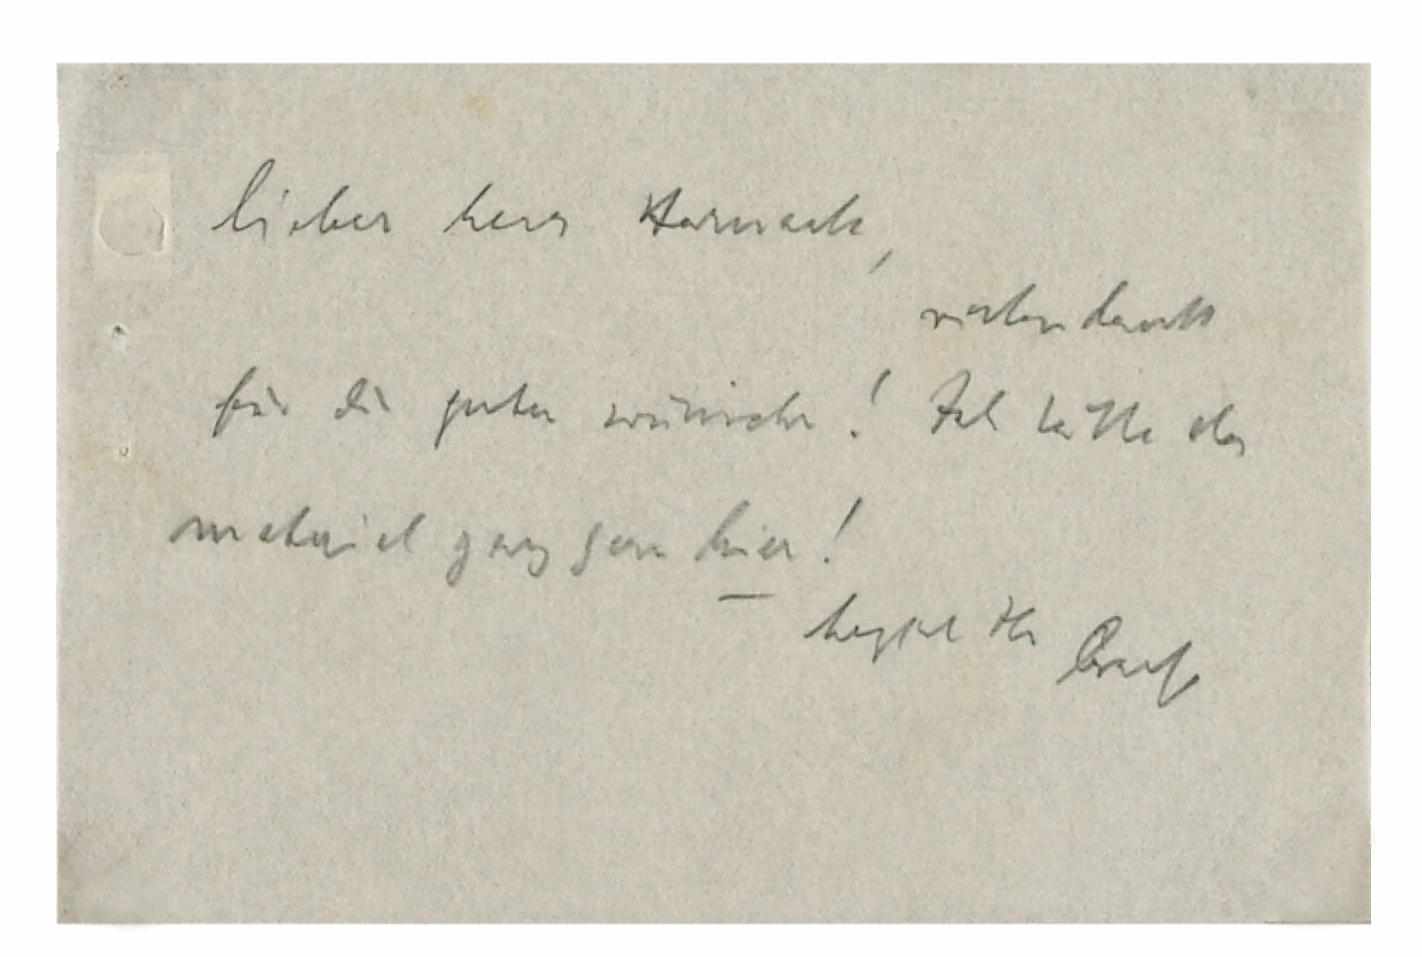 lieber herr Harnack,
vielen dank
für die guten wünsche! Ich hätte das
material ganz gern hier!
herzlich Ihr